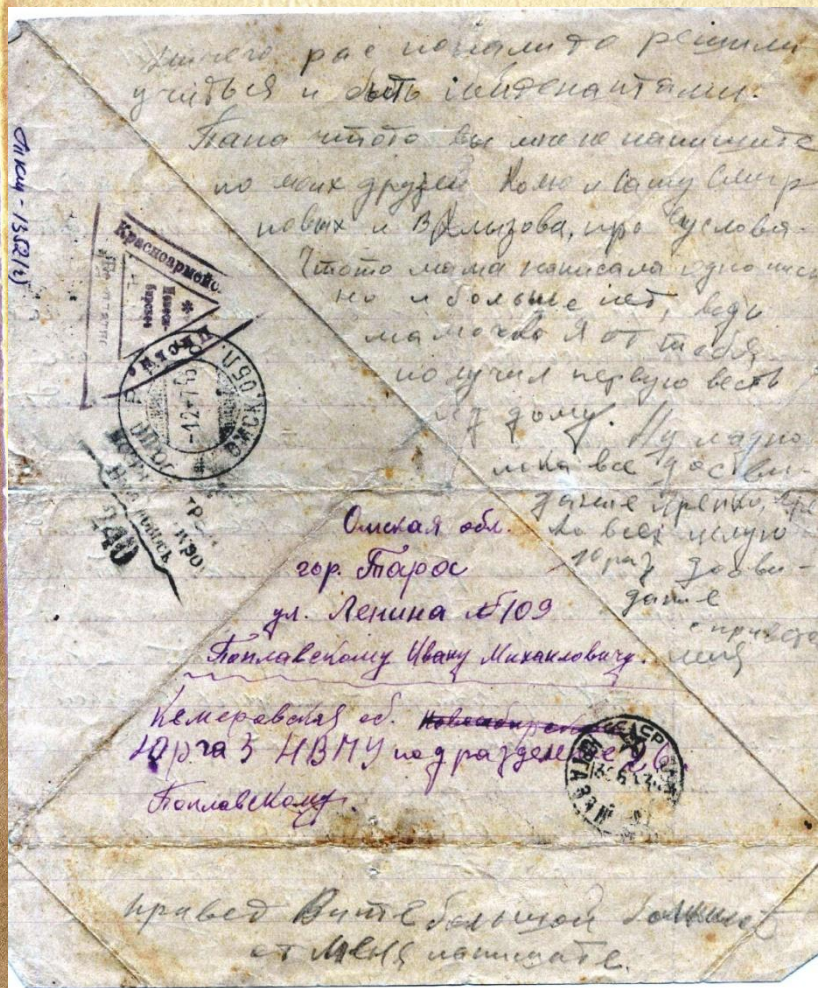 рас попали то решили
учиться и быть лейтенантами.
Папа что то вы мне не напишите
по моих друзей Колю и Сашу Смир
новых и ВКлызова, про Суслова.
Что то мама написала одно пись
мо и больше нет, ведь
мамочка я от тебя
получил первую весть
из дому. Ну ладно
пока все досви-
дание крепко, кре
ко всех целую
10 раз досви-
дание
с приветом
Красноармейс.
Письмо
ОМСК
-1 2 7
240
Омская обл.
гор. Тара
ул. Ленина №109
Поплавскому Ивану Михайловичу.
Кемеровская об. Новосибирская
Юрга 3 НВПУ подразделение
Поплавскому.
привед Вите большой
от меня напишите.